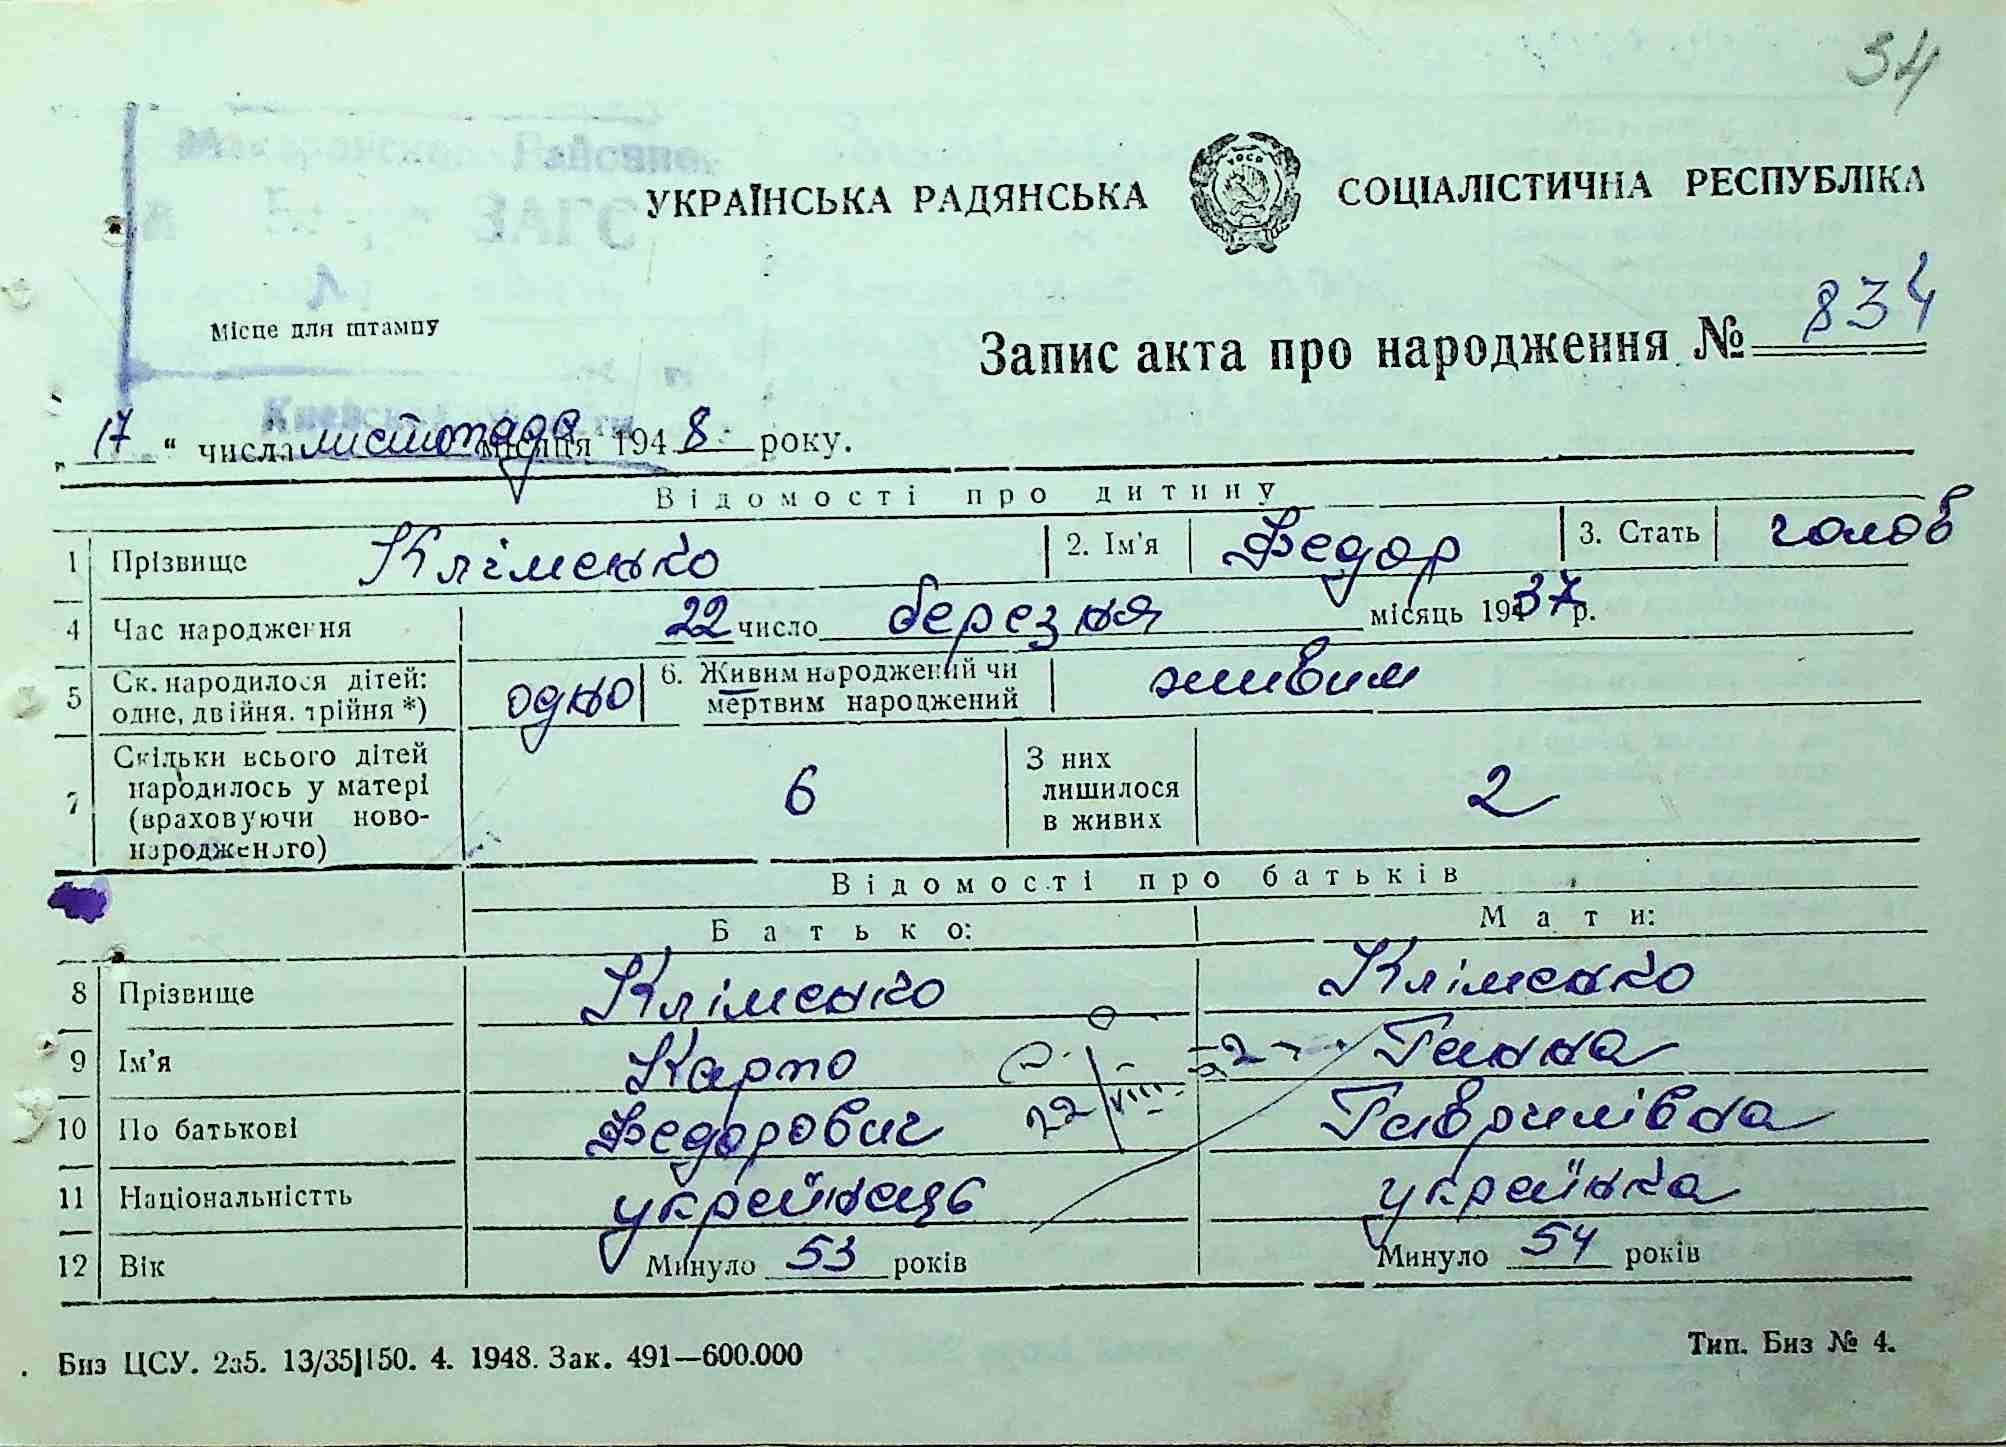 34
Районне
ЗАГС
УКРАЇНСЬКА РАДЯНСЬКА СОЦІАЛІСТИЧНА РЕСПУБЛІКА
УРСР
Місце для штампу
Запис акта про народження № 834
„ 17 “ числа листопада місяця 194 8 року.
Відомості про дитину
1 Прізвище Кліменко 2. Ім'я Федор 3. Стать голов
4 Час народження 22 число березня місяць 1937 р.
5 Ск. народилося дітей: одно 6. Живим народжений чи живим
одне, двійня, трійня *) мертвим народжений
7 Скільки всього дітей 6 З них 2
народилось у матері лишилося
(враховуючи ново- в живих
народженого)
Відомості про батьків
Батько: Мати:
8 Прізвище Кліменко Кліменко
9 Ім'я Карпо Ганна
22/VIII
10 По батькові Федорович Гаврилівна
11 Національністть українець українка
12 Вік Минуло 53 років Минуло 54 років
Биз ЦСУ. 2а5. 13/35 150. 4. 1948. Зак. 491—600.000 Тип. Биз № 4.